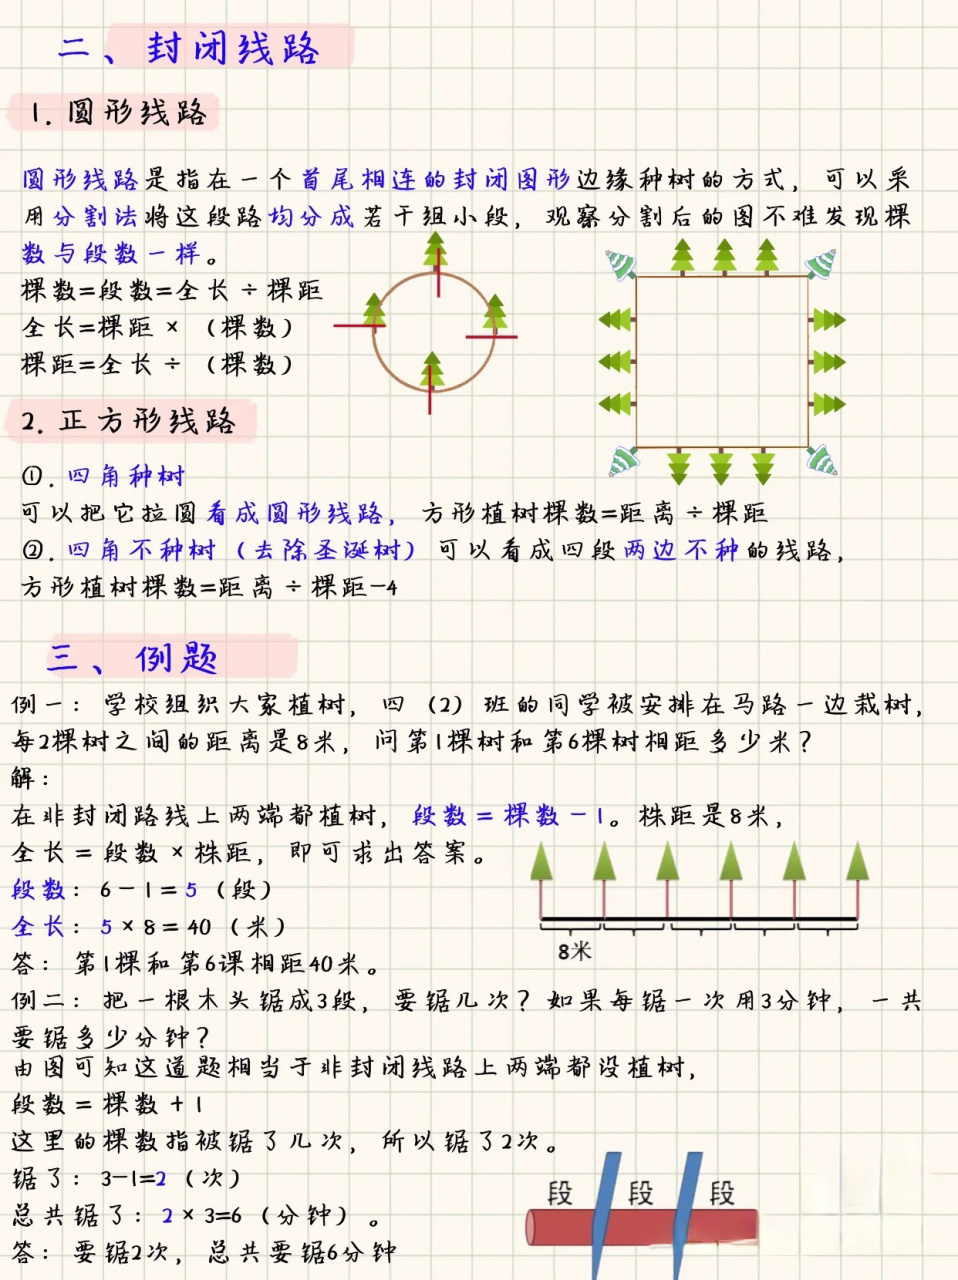 二、封闭线路
1. 圆形线路
圆形线路是指在一个首尾相连的封闭图形边缘种树的方式，可以采
用分割法将这段路均分成若干组小段，观察分割后的图不难发现棵
数与段数一样。
棵数=段数=全长÷棵距
全长=棵距×（棵数）
棵距=全长÷（棵数）
2. 正方形线路
①. 四角种树
可以把它拉圆看成圆形线路，方形植树棵数=距离÷棵距
②. 四角不种树（去除圣诞树）可以看成四段两边不种的线路，
方形植树棵数=距离÷棵距-4
三、例题
例一：学校组织大家植树，四（2）班的同学被安排在马路一边栽树，
每2棵树之间的距离是8米，问第1棵树和第6棵树相距多少米？
解：
在非封闭路线上两端都植树，段数=棵数-1。株距是8米，
全长=段数×株距，即可求出答案。
段数：6-1=5（段）
全长：5×8=40（米）
8米
答：第1棵和第6课相距40米。
例二：把一根木头锯成3段，要锯几次？如果每锯一次用3分钟，一共
要锯多少分钟？
由图可知这道题相当于非封闭线路上两端都设植树，
段数=棵数+1
这里的棵数指被锯了几次，所以锯了2次。
锯了：3-1=2（次）
段 段 段
总共锯了：2×3=6（分钟）。
答：要锯2次，总共要锯6分钟